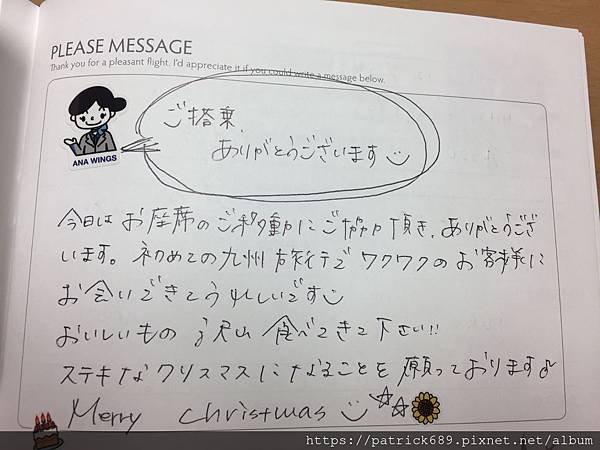 PLEASE MESSAGE
Thank you for a pleasant flight. I'd appreciate it if you could write a message below.
ご搭乗、
ありがとうございます
ANA WINGS
今日は お座席の ご移動に ご協力 頂き、ありがとうござ
います。初めての九州旅行で ワクワクの お客様に
お会いできてうれしいです
おいしいもの 沢山 食べてきて下さい!!
ステキなクリスマスになることを 願っております♪
Merry christmas
https://patrick689.pixnet.net/album